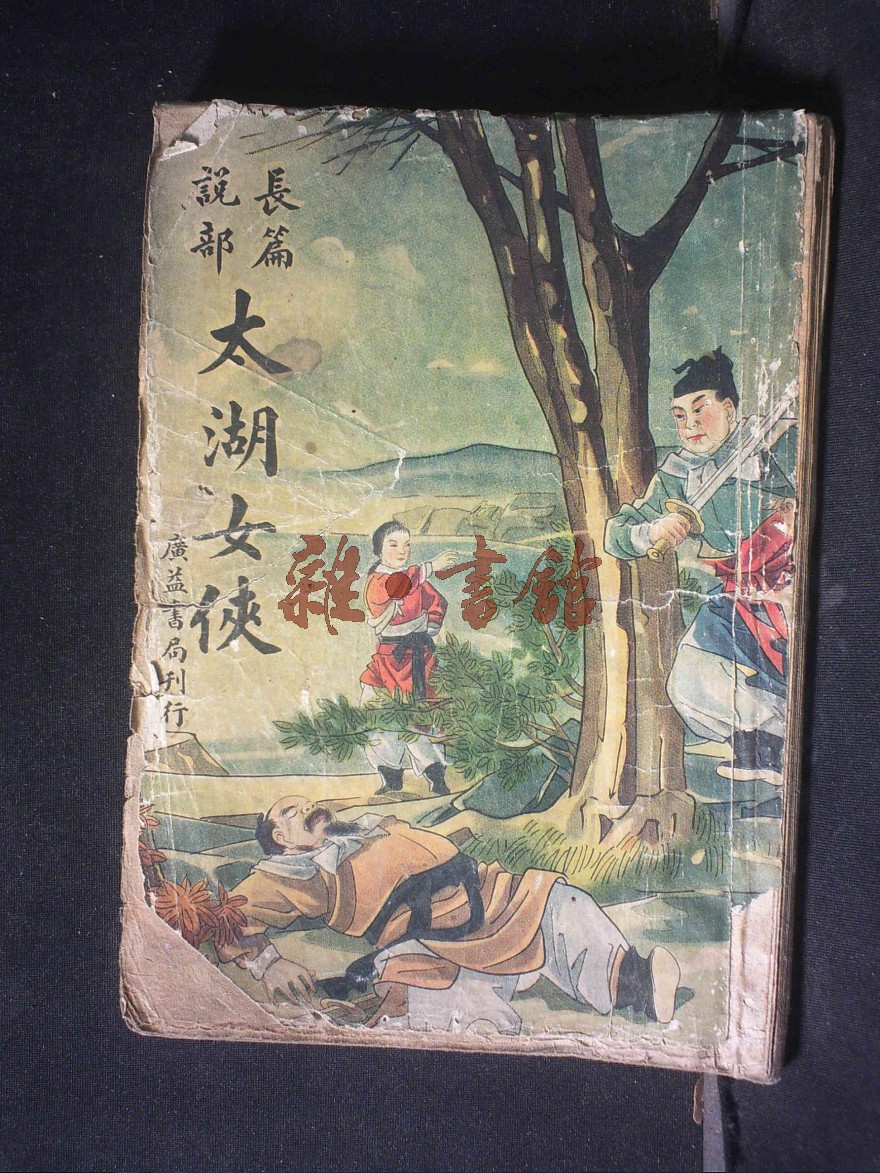 長篇
説部
太湖女俠
廣益書局刊行
雜·書館